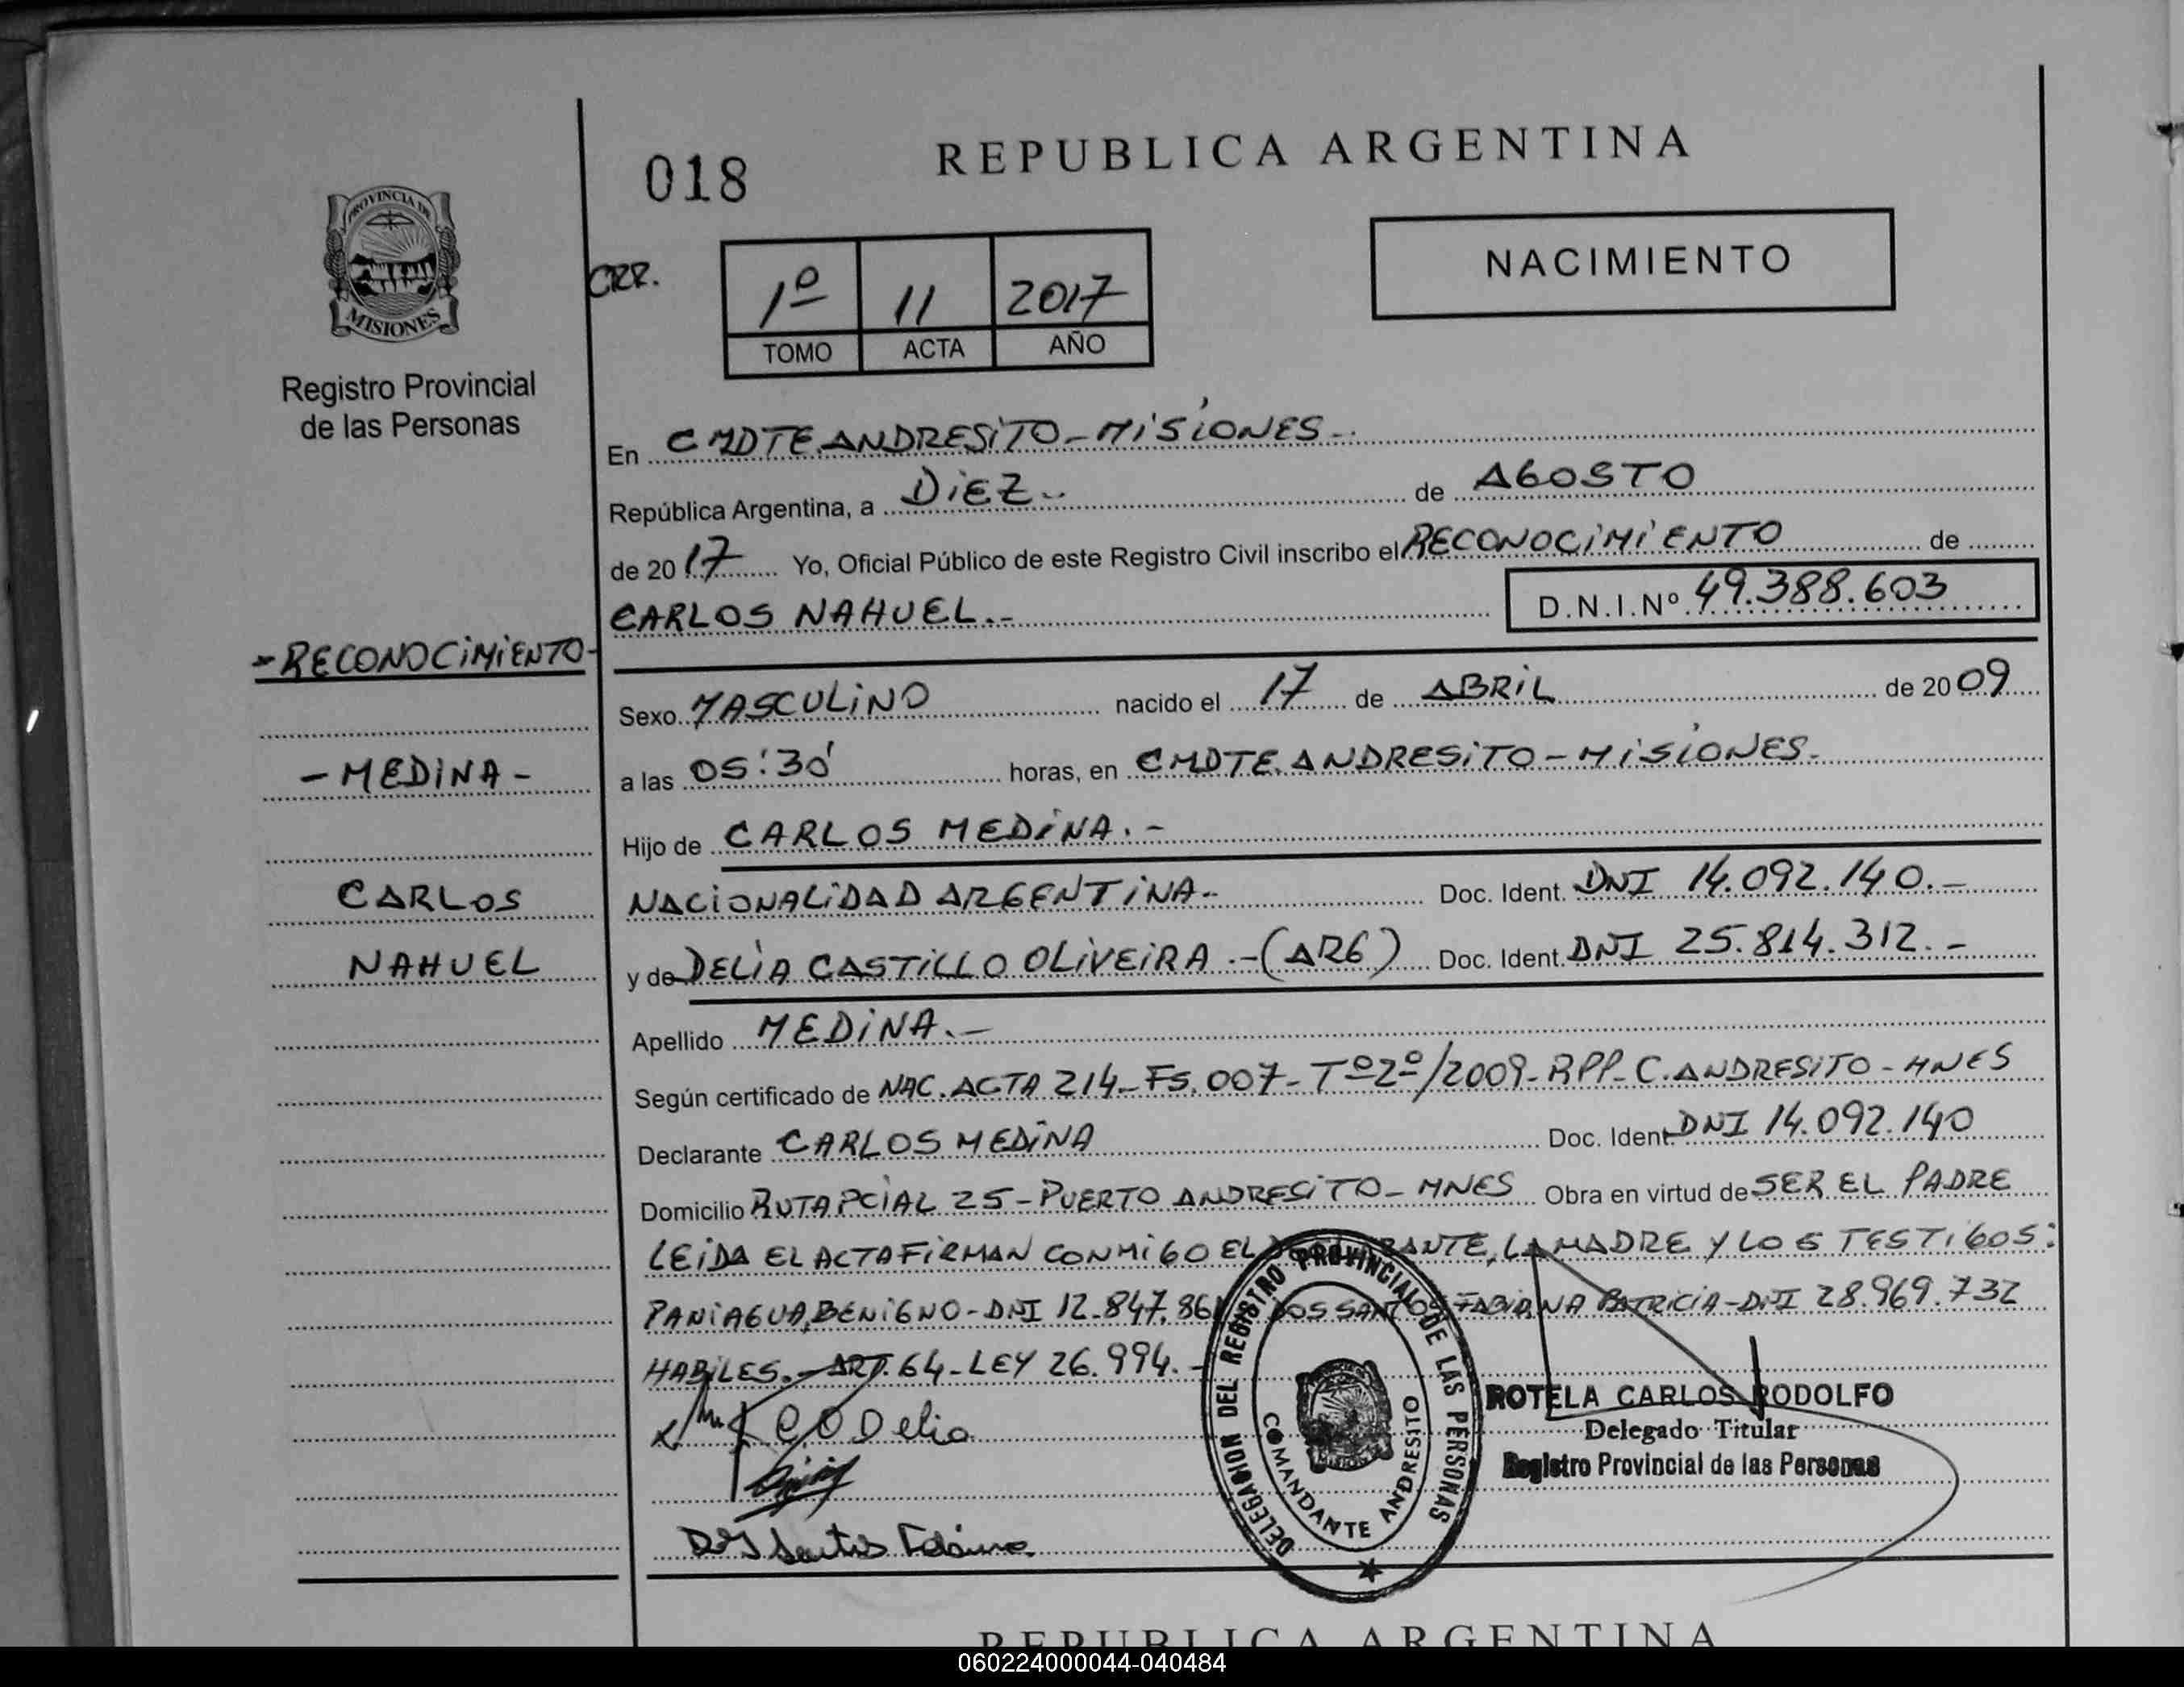 018
REPUBLICA ARGENTINA
PROVINCIA DE
MISIONES
Registro Provincial
de las Personas
CRR.
1º 11 2017
TOMO ACTA AÑO
NACIMIENTO
En CMDTE ANDRESITO - MISIONES -.
República Argentina, a DIEZ -. de AGOSTO
de 2017 Yo, Oficial Público de este Registro Civil inscribo el RECONOCIMIENTO de
CARLOS NAHUEL.- D.N.I.Nº 49.388.603
- RECONOCIMIENTO -
Sexo MASCULINO nacido el 17 de ABRIL de 2009
- MEDINA -
a las 05:30' horas, en CMDTE. ANDRESITO - MISIONES -
Hijo de CARLOS MEDINA.-
CARLOS
NACIONALIDAD ARGENTINA - Doc. Ident. DNI 14.092.140.-
NAHUEL
y de DELIA CASTILLO OLIVEIRA.- (ARG) Doc. Ident. DNI 25.814.312.-
Apellido MEDINA.-
Según certificado de NAC. ACTA 214 - Fs. 007 - Tº 2º/2009 - RPP - C. ANDRESITO - MNES
Declarante CARLOS MEDINA Doc. Ident. DNI 14.092.140
Domicilio RUTA PCIAL 25 - PUERTO ANDRESITO - MNES Obra en virtud de SER EL PADRE
LEIDA EL ACTA FIRMAN CONMIGO EL LA MADRE Y LOS TESTIGOS:
PANIAGUA, BENIGNO - DNI 12.847.86 DOS SANTOS FABIANA PATRICIA - DNI 28.969.732
HABILES.- ART. 64 - LEY 26.994.-
C.O Delia
Dos Santos Fabiana
DELEGACION DEL REGISTRO PROVINCIAL DE LAS PERSONAS
COMANDANTE ANDRESITO
ROTELA CARLOS RODOLFO
Delegado Titular
Registro Provincial de las Personas
REPUBLICA ARGENTINA
060224000044-040484